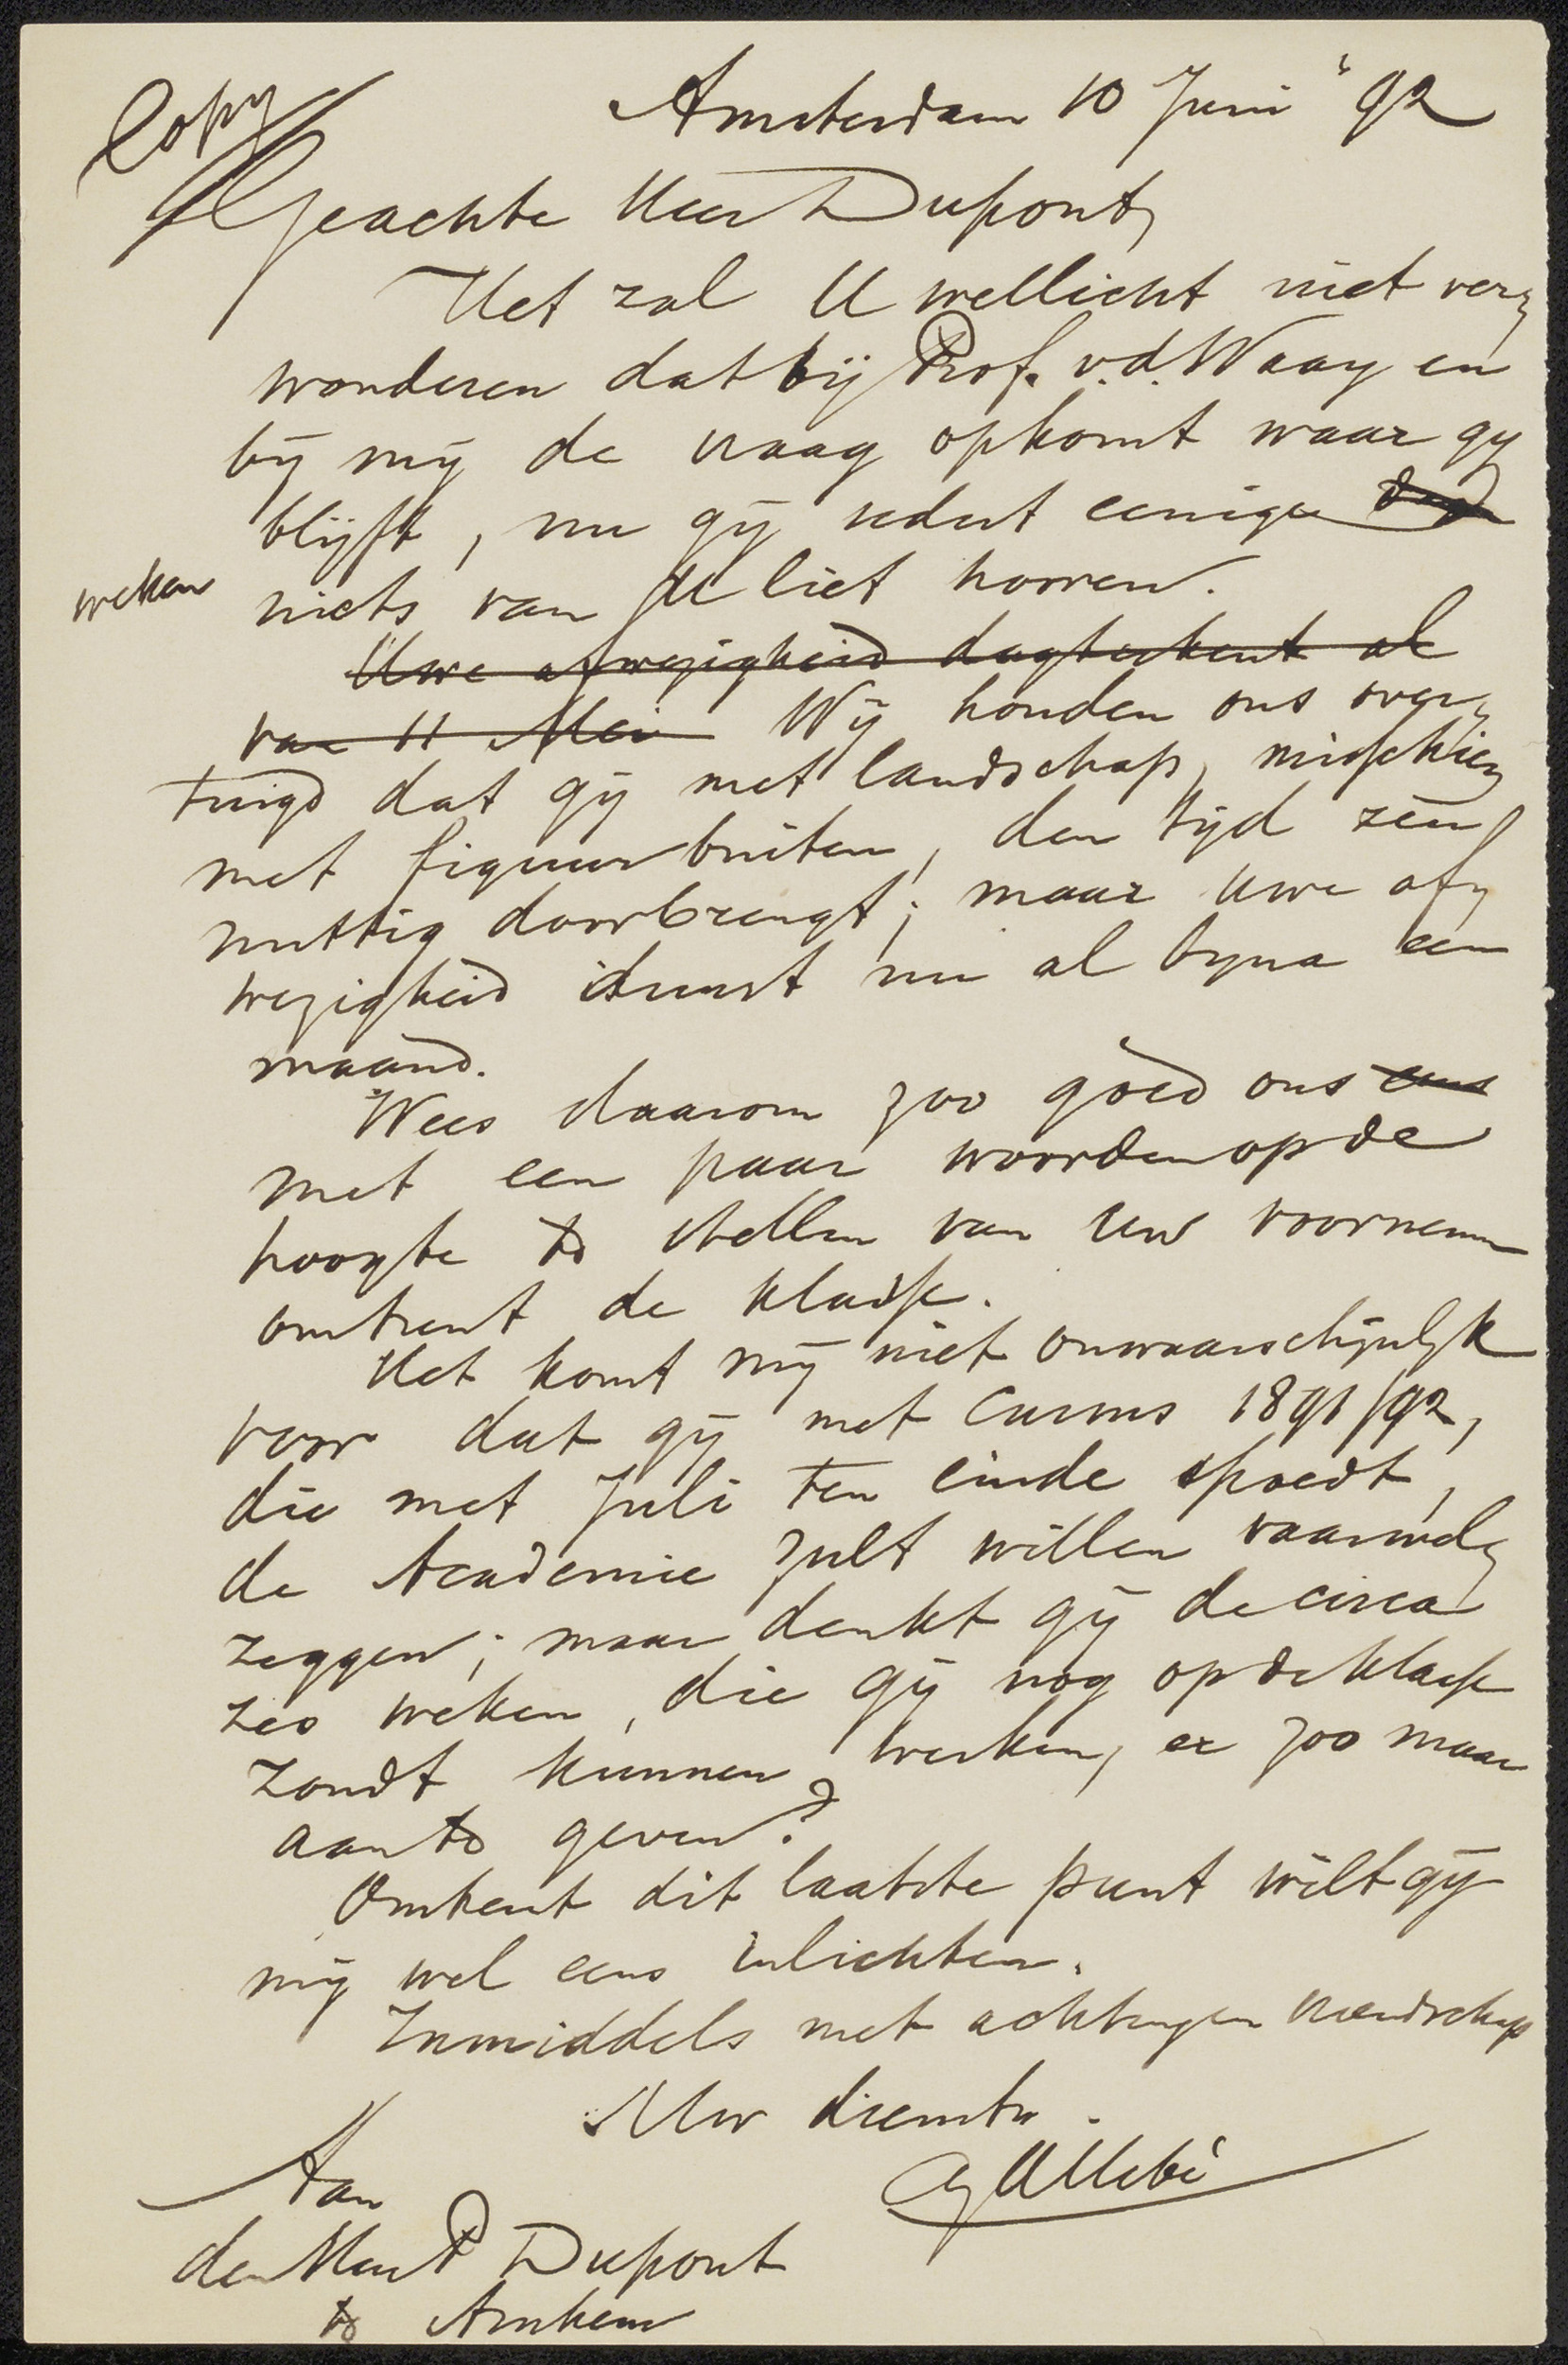 Copy
Amsterdam 10 Juni '92
Geachte Heer Dupont,
Het zal U wellicht niet ver-
wonderen dat bij Prof. v.d. Waay en
bij mij de vraag opkomt waar gij
blijft, nu gij sedert eenige dag
weken niets van U liet hooren.
Uwe afwezigheid dagteekent al
van 11 Mei Wij houden ons over-
tuigd dat gij met landschap, misschien
met figuur buiten, den tijd zéér
nuttig doorbrengt; maar uwe af-
wezigheid duurt nu al byna een
maand.
Wees daarom zoo goed ons eens
met een paar woorden op de
hoogte te stellen van Uw voornemen
omtrent de klasse.
Het komt mij niet onwaarschijnlijk
voor dat gij met Cursus 1891/92,
die met Juli ten einde spoedt,
de Academie zult willen vaarwel-
zeggen; maar denkt gij de circa
zes weken, die gij nog op de klasse
zoudt kunnen werken, er zoo maar
aan te geven?
Omtrent dit laatste punt wilt gij
mij wel eens inlichten.
Inmiddels met achting en vriendschap
Uw dienstw.
A Allebé
Aan
den Heer P Dupont
te Arnhem